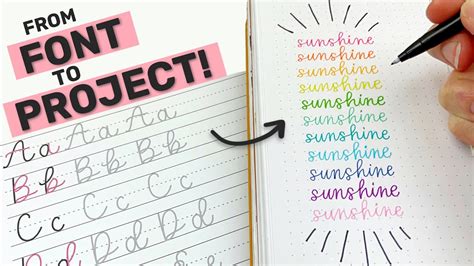 FROM
FONT
TO
PROJECT!
Aa Aa Aa
Bb Bb Bb
Cc Cc
Dd Dd
sunshine
sunshine
sunshine
sunshine
sunshine
sunshine
sunshine
sunshine
sunshine
sunshine
sunshine